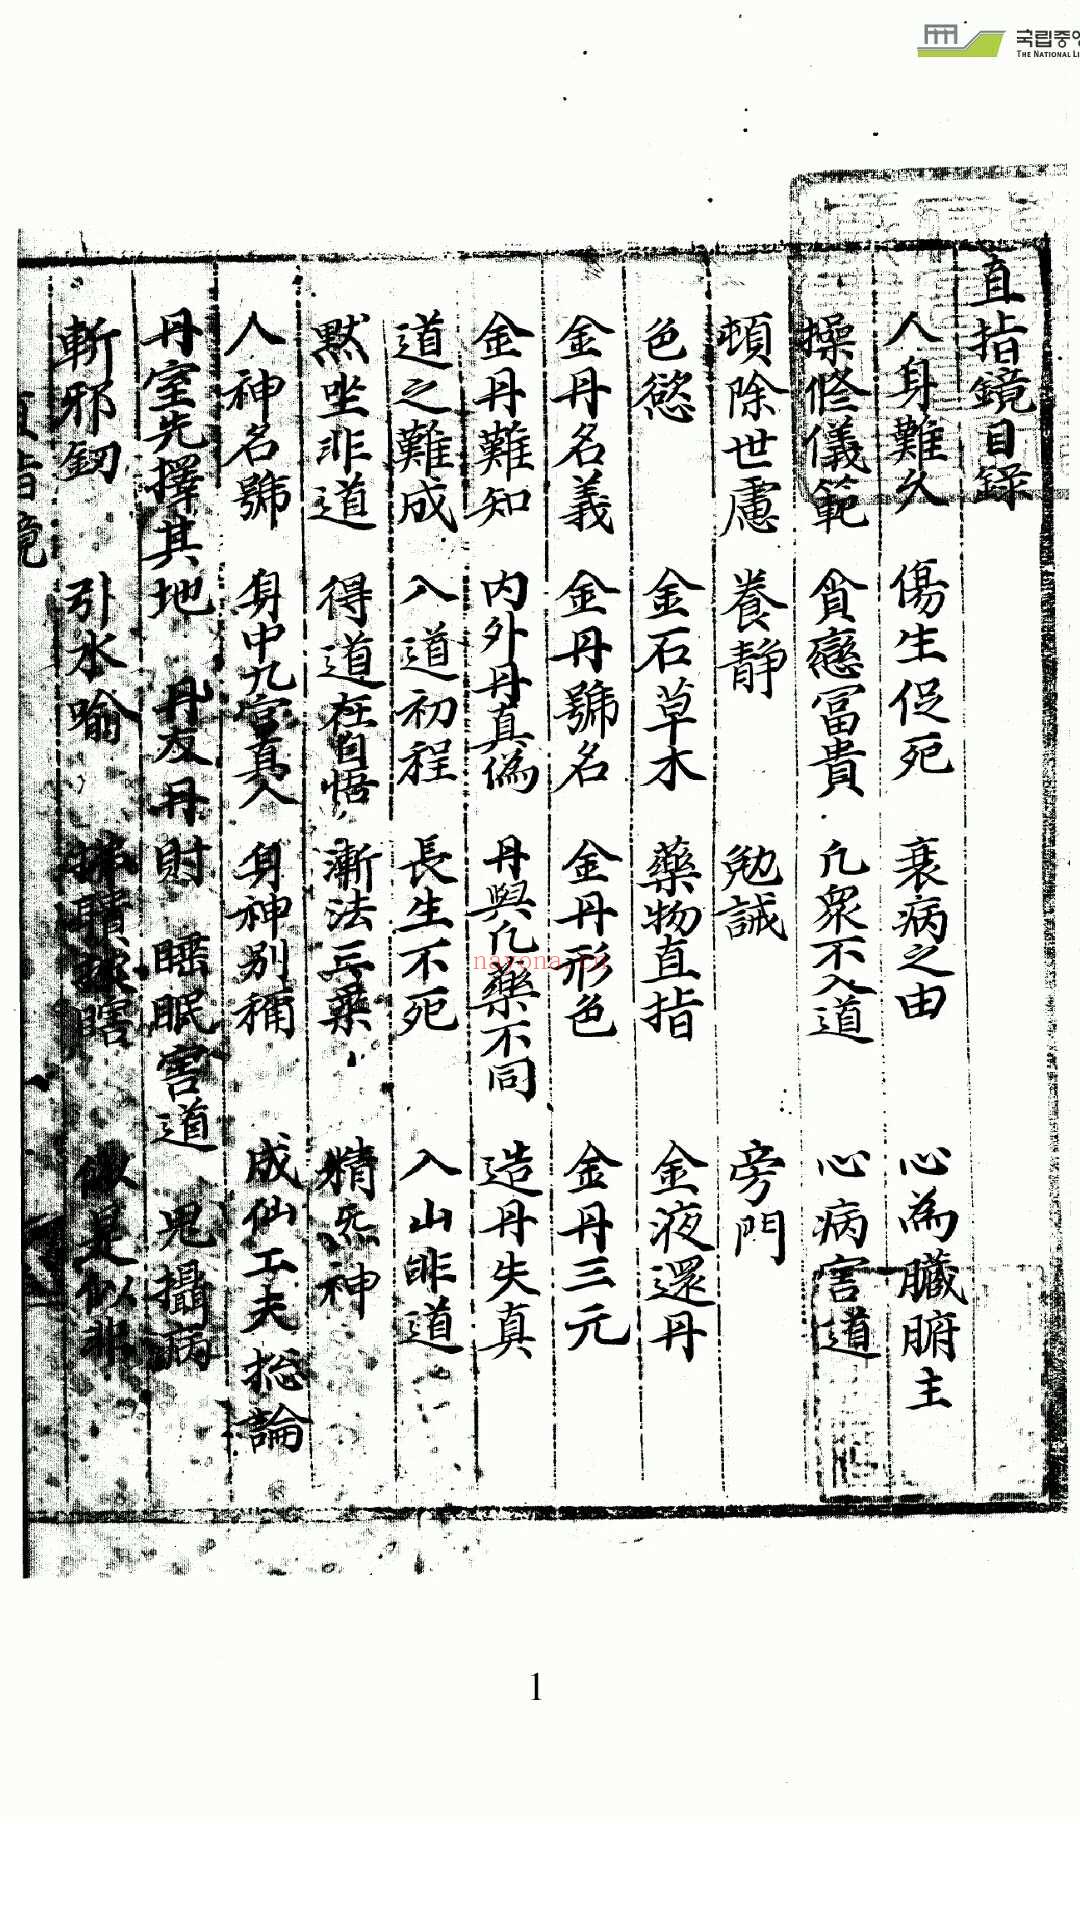 국립중앙
THE NATIONAL LI
直指鏡目錄
人身難久 傷生促死 衰病之由 心為臟腑主
操修儀範 貪戀冨貴 凢衆不入道 心病害道
頓除世慮 養静 勉誡 旁門
色慾 金石草木 藥物直指 金液還丹
金丹名義 金丹號名 金丹形色 金丹三元
金丹難知 内外丹真偽 丹與凢藥不同 造丹失真
道之難成 入道初程 長生不死 入山非道
黙坐非道 得道在自悟 漸法三乗 精炁神
人神名號 身中九宫真人 身神别稱 成仙工夫捴論
丹室先擇其地 丹友丹財 睡眠害道 鬼攝病
斬邪釰 引水喻 瞎 似是似非
直指鏡
nayona.cn
1